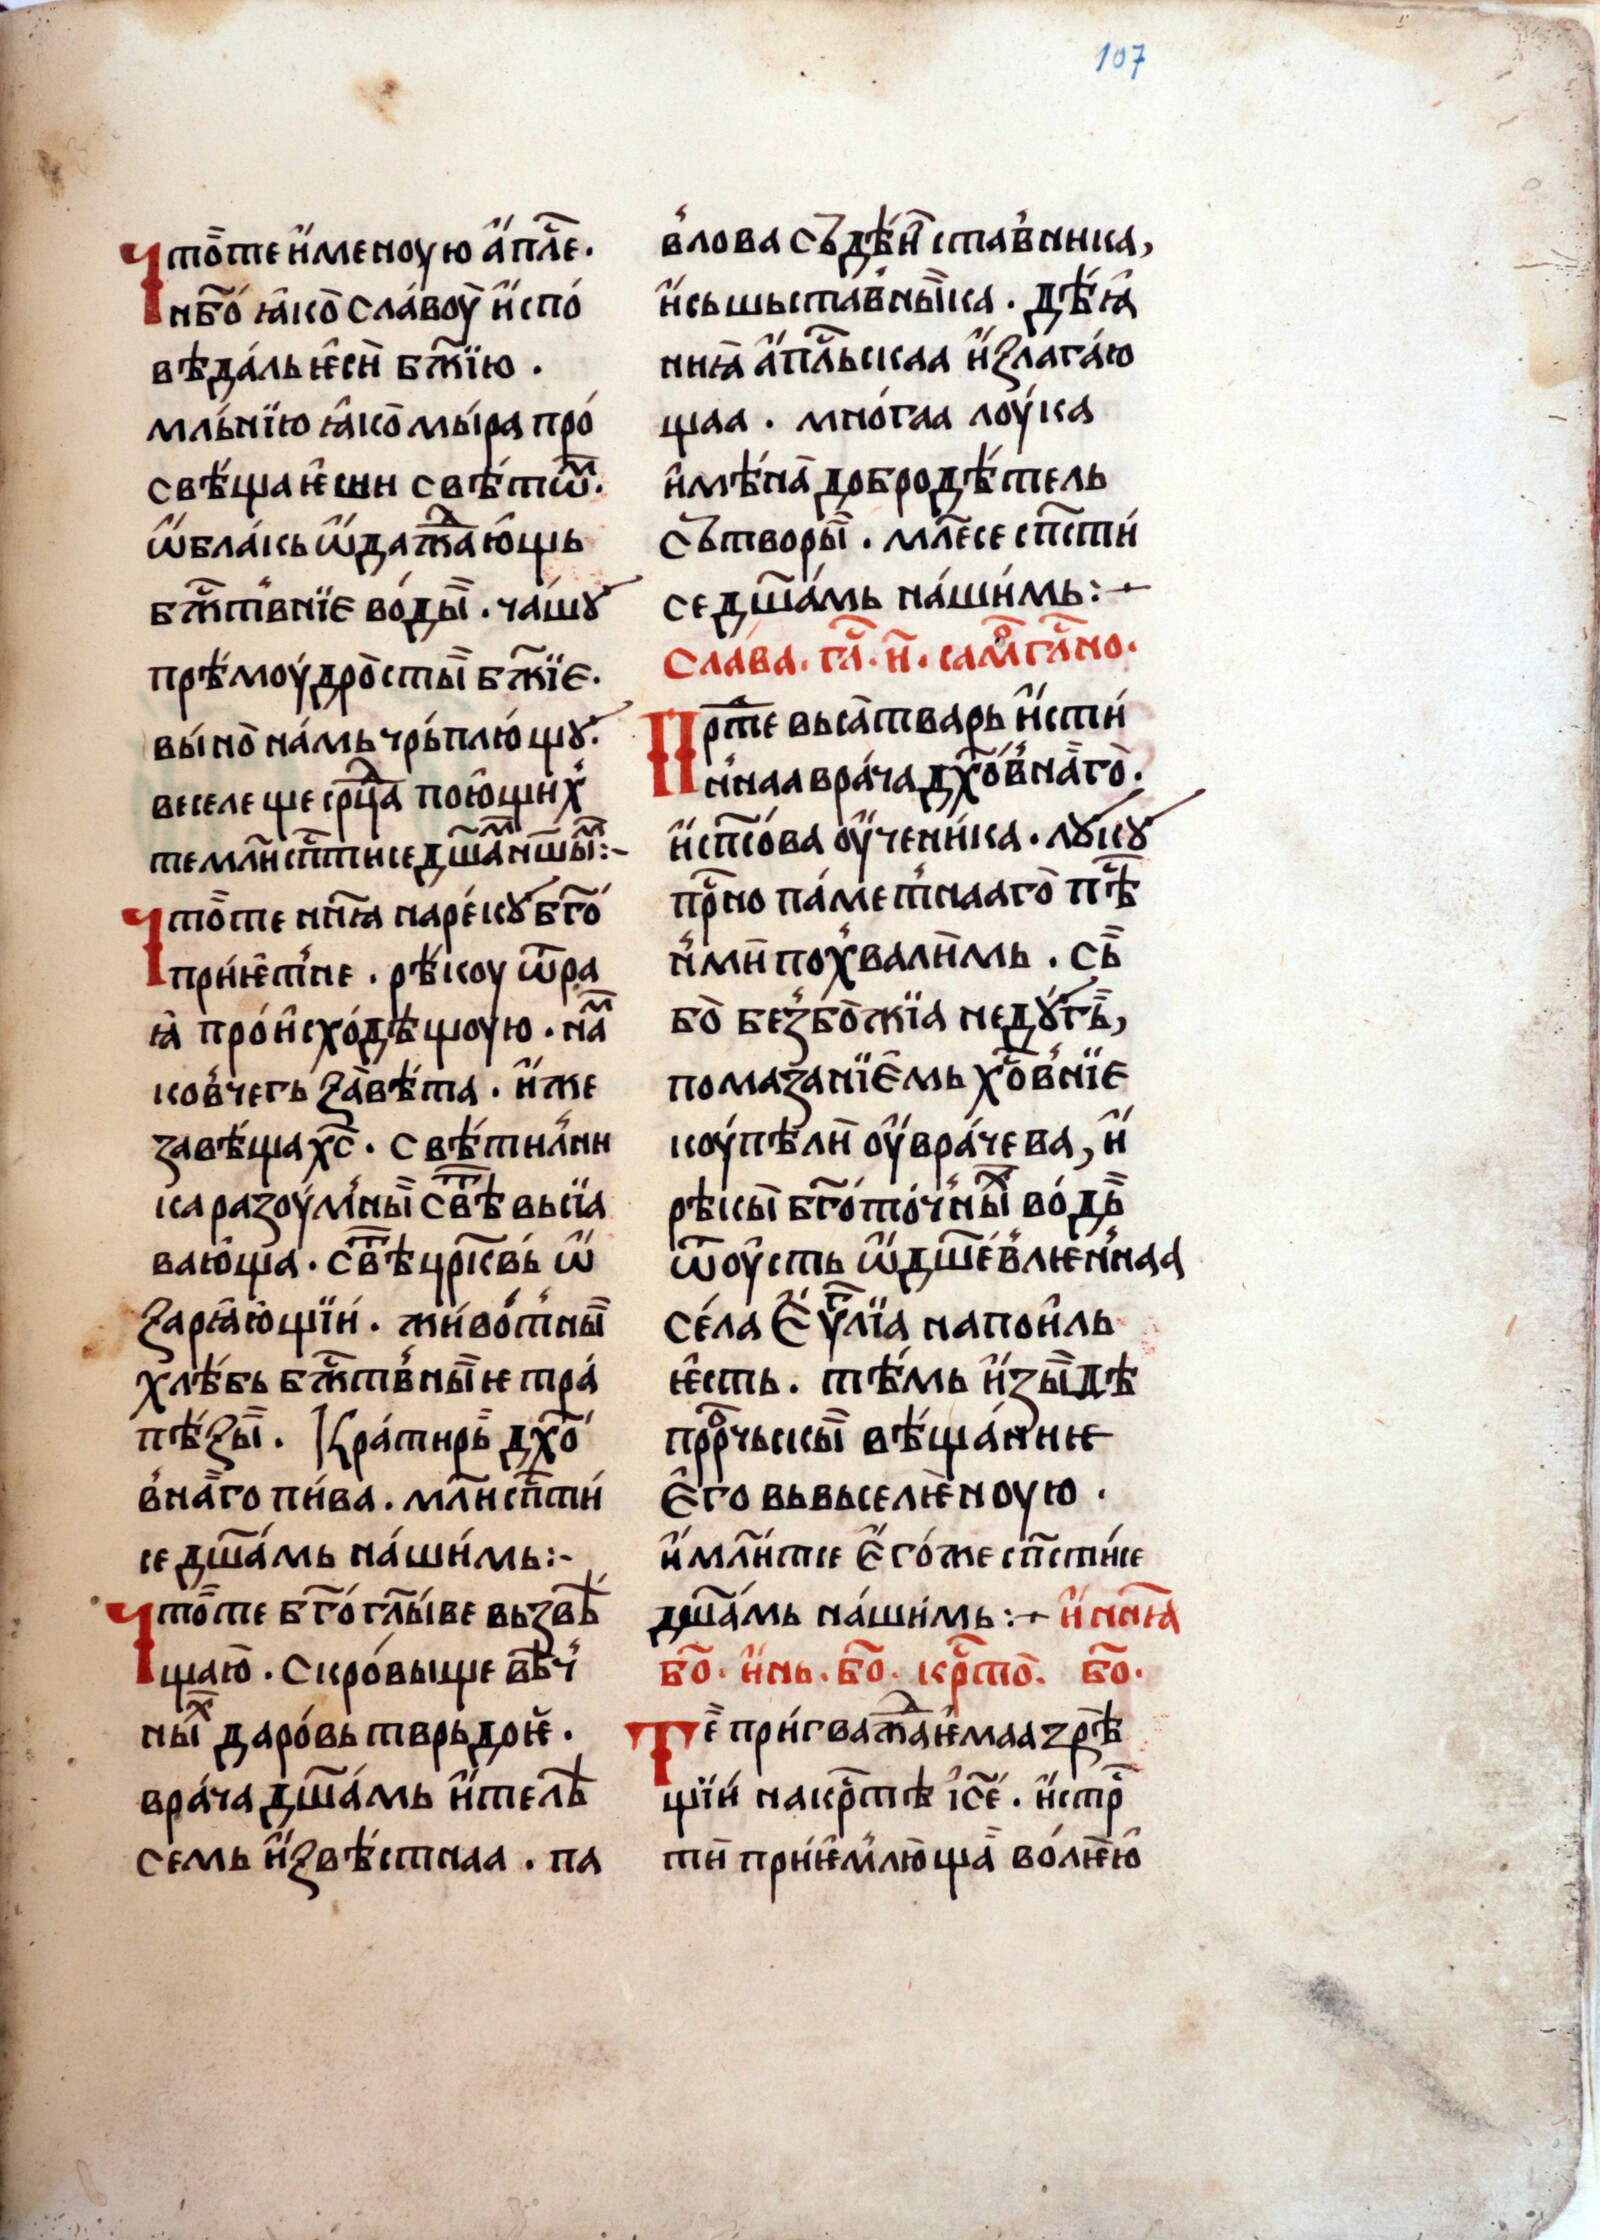 107
Что́те и҆меноую а҆пⷭ҇ле.
нбо́ ꙗ҆ко сла́воу и҆спо́
вѣда́ль ѥ҆си бж҃їю.
мль́нїю ꙗ҆ко мы́ра про́
свѣ́ща ѥ҆ши свѣ́тѡⷨ.
ѡ҆бла́кь ѡ҆даждаю҆щь
бжⷭ҇твнїе во́ды. ча́шꙋ
прѣмоу́дросты бж҃їе.
вы́но на́мь чрь́плю́щꙋ.
веселеще срⷣца пою҆щих
те мл҃и сп҃стисе дш҃аⷨ нш҃ыⷨ:~
Что́те нн҃ꙗ наре́кꙋ бг҃о́
при́ѥ҆тне. рѣ́коу ѿ ра
ꙗ҆ про́и҆схо́дѣщоую. наⷨ
ковчегь ꙁавѣ́та. и҆же
завѣ́ща хс҃. свѣ́тилни
ка разоу́мны свⷮѣ высїа
ваю҆ща. свⷮѣ црк҃вь́ ѡ҆
ꙁарꙗ҆ю҆щїи. жи́во́тны
хлѣ́бь бжⷭ҇твныѥ тра́
пѣ́ꙁы. Кра́тирь дх҃о́
вна́го пи́ва. мл҃и сп҃сти́
се дш҃а́мь на́ши́мь:~
Что́те бг҃о́гл҃ы́ве вьзвѣ́
щаю. скро́выще вѣч
ныⷯ даро́вь тврьдоѥ.
вра́ча дш҃а́мь и҆ телѣ
семь и҆ꙁвѣ́стнаа. па
влова съдѣ́и ставника,
и҆ сьшьставныка. дѣ́ꙗ
ниꙗ а҆пⷭ҇льскаа и҆ꙁлага́ю
щаа. мно́гаа лоу́ка
и҆мѣ́на добродѣ́тель
сътворы. мл҃есе сп҃сти́
се дш҃а́мь на́ши́мь:~
Сла́ва. гла. и҃. самогла́но.
Прⷣте вьса тварь и҆сти́
ннаа вра́ча дх҃о́внаго.
и҆ сп҃со́ва оу҆чени́ка. лꙋкꙋ
прⷭ҇но па́метнааго пⷭ҇ѣ
ними похвалимь. съ
бо безбожїа недꙋ́гь,
помазанїемь хⷭ҇о́внїе
коу́пѣли оу҆вра́чева, и҆
рѣкы бг҃о́то́чныⷯ во́дь
ѿ оу҆сть ѡ҆дш҃е́влѥннаа
се́ла Е҆ѵⷢ҇лїа напои҆ль
ѥ҆сть. тѣ́мь и҆зы́дѣ
прⷪ҇рчьскы вѣ́ща́ниѥ
Е҆го вь вьселѥноую.
и҆ мл҃и́тсе е҆го́же сп҃сти́се
дш҃а́мь на́ши́мь:~ и҆ нн҃ꙗ
бо. и҆нь. бо. крⷭ҇то. бо.
Те при́гваждаѥ҆маа зрѣ
щїи на крⷭ҇тѣ і҆с҃е. и҆ стрⷭ҇
ти при́ѥ҆млюща во́лѥю҆